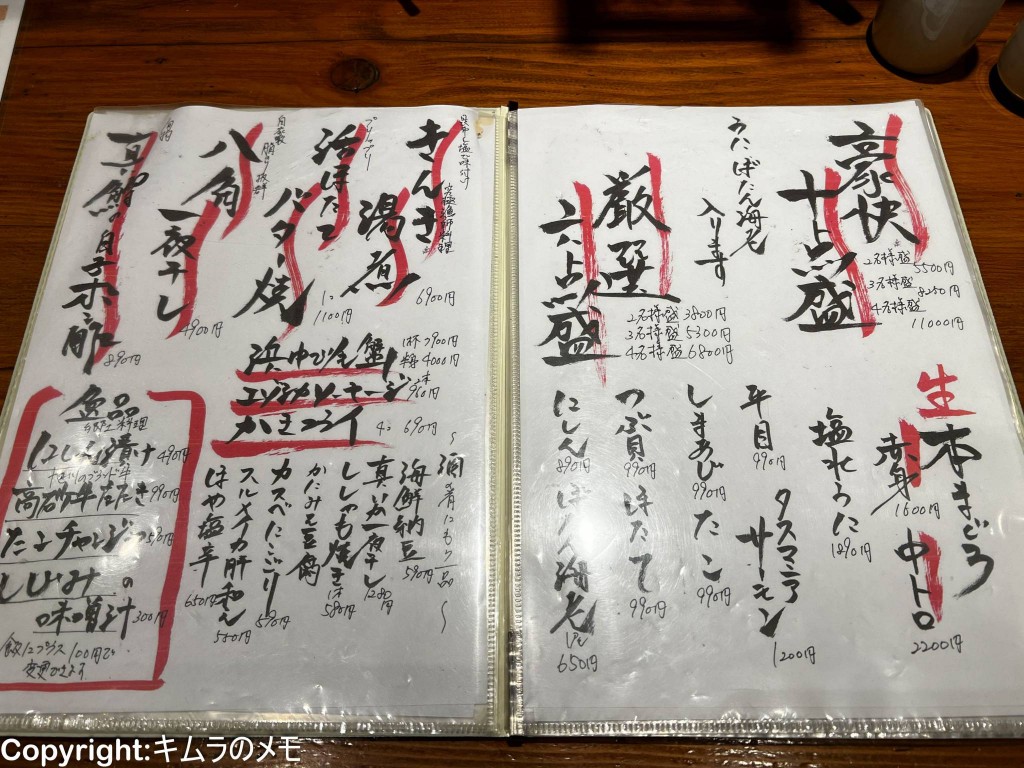 豪快
十点盛
2名様盛 5500円
3名様盛 8250円
4名様盛 11000円
うに ぼたん海老
入ります
厳選
六点盛
2名様盛 3800円
3名様盛 5300円
4名様盛 6800円
生本まぐろ
赤身 1600円
中トロ 2200円
塩水うに 1890円
平目 990円
タスマニアサーモン 1200円
しまあじ 990円
たこ 990円
つぶ貝 990円
ほたて 990円
にしん 890円
ぼたん海老 650円
昆布と塩で味付け
究極漁師料理
きんき
湯煮 6900円
プリップリ
活ほたて
バター焼 1100円
自家製
脂のり抜群
八角
一夜干し 4900円
真鱈の白子ポン酢 890円
浜ゆで毛蟹
半身 4000円
エゾシカソーセージ
かきフライ 690円
〜酒の肴にもう一品〜
海鮮納豆 590円
真いか一夜干し 1280円
ししゃも焼き 580円
かにみそ豆腐
カスベたこぶり 590円
スルメイカ肝和え 580円
ほや塩辛 650円
逸品
郷土料理
にしん漬け 490円
高砂牛たたき 990円
たこチャンジャ 590円
しじみの
味噌汁 300円
飯にプラス100円で
変更できます
Copyright:キムラのメモ